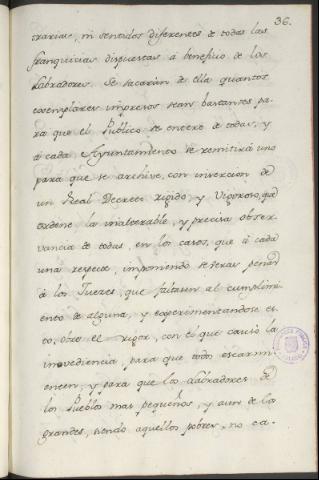 36.
trarias, ni sentidos diferentes de todas las
franquicias dispuestas á beneficio de los
Labradores. Se sacarán de ella quantos
exemplares impresos sean bastantes pa-
ra que el Público se entere de todas, y
á cada Ayuntamiento se remitirá uno
para que se archive, con insercion de
un Real Decreto rígido, y vigoroso, que
ordene la inalterable, y precisa obser-
vancia de todas, en los casos, que á cada
una respecte, imponiendo severas penas
á los Jueces, que faltasen al cumplimi-
ento de alguna, y experimentandose es-
to, el rigor, con el que causó la
inovediencia, para que todos escarmi-
enten, y para que los Labradores de
los Pueblos mas pequeños, y aun de los
grandes, siendo aquellos pobres, no ca-